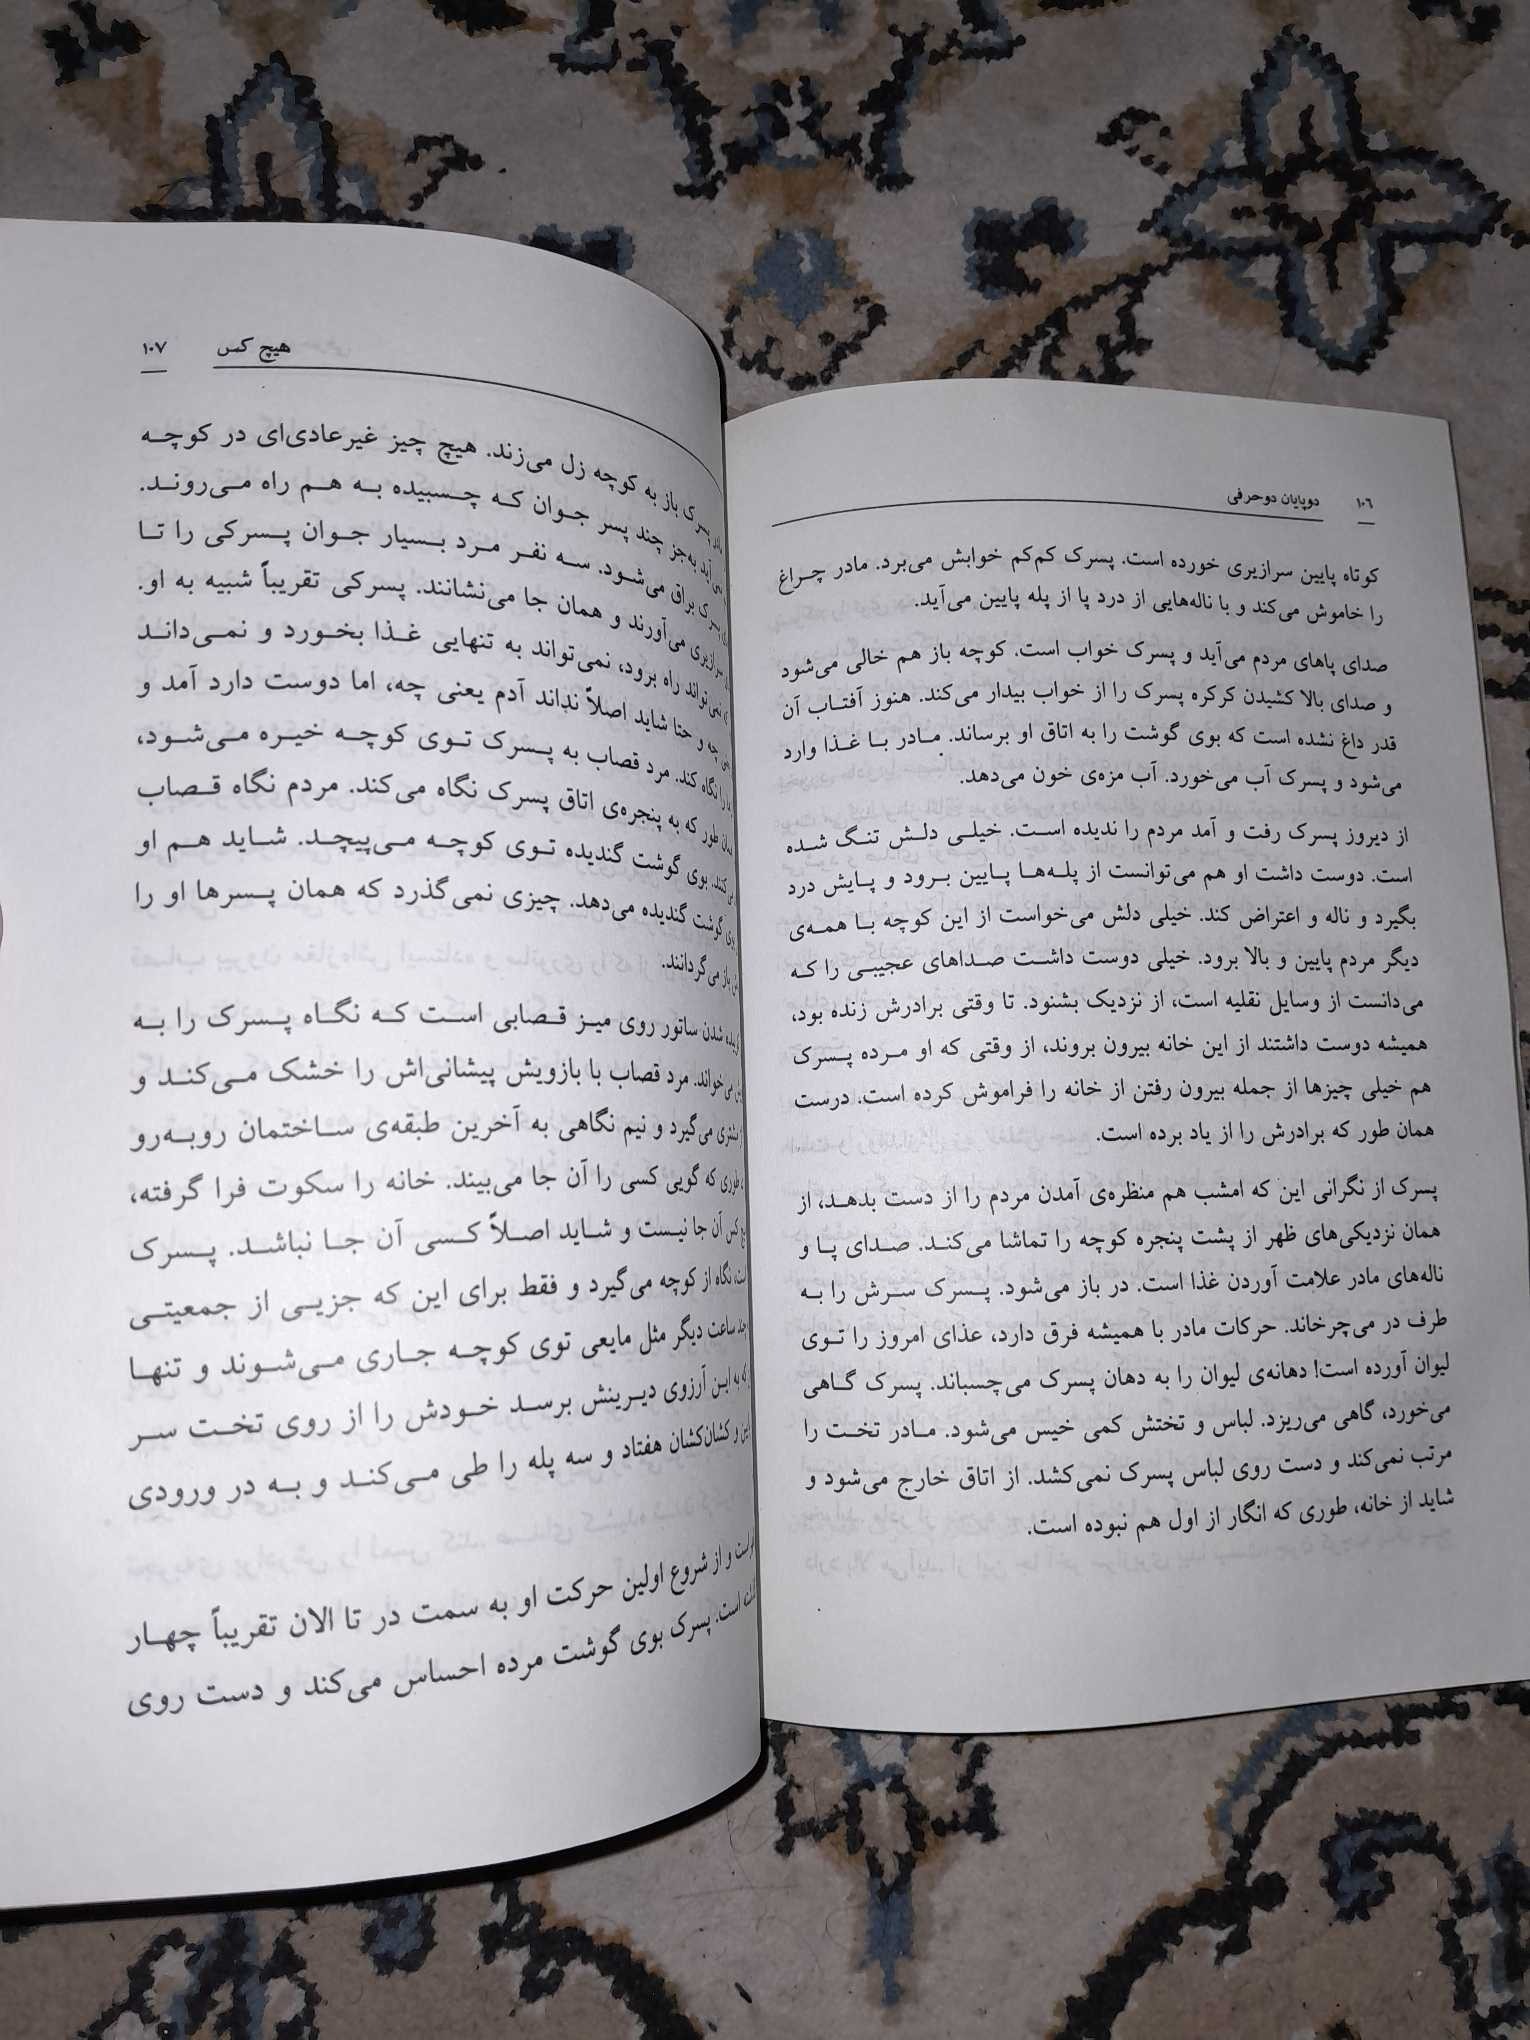 ۱۰۶ دوپایان دوحرفی
کوتاه پایین سرازیری خورده است. پسرک کم‌کم خوابش می‌برد. مادر چراغ
را خاموش می‌کند و با ناله‌هایی از درد پا از پله پایین می‌آید.
صدای پاهای مردم می‌آید و پسرک خواب است. کوچه باز هم خالی می‌شود
و صدای بالا کشیدن کرکره پسرک را از خواب بیدار می‌کند. هنوز آفتاب آن
قدر داغ نشده است که بوی گوشت را به اتاق او برساند. مادر با غذا وارد
می‌شود و پسرک آب می‌خورد. آب مزه‌ی خون می‌دهد.
از دیروز پسرک رفت و آمد مردم را ندیده است. خیلی دلش تنگ شده
است. دوست داشت او هم می‌توانست از پله‌ها پایین برود و پایش درد
بگیرد و ناله و اعتراض کند. خیلی دلش می‌خواست از این کوچه با همه‌ی
دیگر مردم پایین و بالا برود. خیلی دوست داشت صداهای عجیبی را که
می‌دانست از وسایل نقلیه است، از نزدیک بشنود. تا وقتی برادرش زنده بود،
همیشه دوست داشتند از این خانه بیرون بروند، از وقتی که او مرده پسرک
هم خیلی چیزها از جمله بیرون رفتن از خانه را فراموش کرده است. درست
همان طور که برادرش را از یاد برده است.
پسرک از نگرانی این که امشب هم منظره‌ی آمدن مردم را از دست بدهد، از
همان نزدیکی‌های ظهر از پشت پنجره کوچه را تماشا می‌کند. صدای پا و
ناله‌های مادر علامت آوردن غذا است. در باز می‌شود. پسرک سرش را به
طرف در می‌چرخاند. حرکات مادر با همیشه فرق دارد، عذای امروز را توی
لیوان آورده است! دهانه‌ی لیوان را به دهان پسرک می‌چسباند. پسرک گاهی
می‌خورد، گاهی می‌ریزد. لباس و تختش کمی خیس می‌شود. مادر تخت را
مرتب نمی‌کند و دست روی لباس پسرک نمی‌کشد. از اتاق خارج می‌شود و
شاید از خانه، طوری که انگار از اول هم نبوده است.
هیچ کس ۱۰۷
پسرک باز به کوچه زل می‌زند. هیچ چیز غیرعادی‌ای در کوچه
آید به‌جز چند پسر جوان که چسبیده به هم راه می‌روند.
پسرک براق می‌شود. سه نفر مرد بسیار جوان پسرکی را تا
سرازیری می‌آورند و همان جا می‌نشانند. پسرکی تقریباً شبیه به او.
نمی‌تواند راه برود، نمی‌تواند به تنهایی غذا بخورد و نمی‌داند
چه و حتا شاید اصلاً نداند آدم یعنی چه، اما دوست دارد آمد و
را نگاه کند. مرد قصاب به پسرک توی کوچه خیره می‌شود،
طور که به پنجره‌ی اتاق پسرک نگاه می‌کند. مردم نگاه قصاب
کنند. بوی گوشت گندیده توی کوچه می‌پیچد. شاید هم او
گوشت گندیده می‌دهد. چیزی نمی‌گذرد که همان پسرها او را
باز می‌گردانند.
شدن ساتور روی میز قصابی است که نگاه پسرک را به
می‌خواند. مرد قصاب با بازویش پیشانی‌اش را خشک می‌کند و
می‌گیرد و نیم نگاهی به آخرین طبقه‌ی ساختمان روبه‌رو
که گویی کسی را آن جا می‌بیند. خانه را سکوت فرا گرفته،
کس آن جا نیست و شاید اصلاً کسی آن جا نباشد. پسرک
نگاه از کوچه می‌گیرد و فقط برای این که جزیی از جمعیتی
ساعت دیگر مثل مایعی توی کوچه جاری می‌شوند و تنها
به این آرزوی دیرینش برسد خودش را از روی تخت سر
و کشان‌کشان هفتاد و سه پله را طی می‌کند و به در ورودی
است و از شروع اولین حرکت او به سمت در تا الان تقریباً چهار
است. پسرک بوی گوشت مرده احساس می‌کند و دست روی